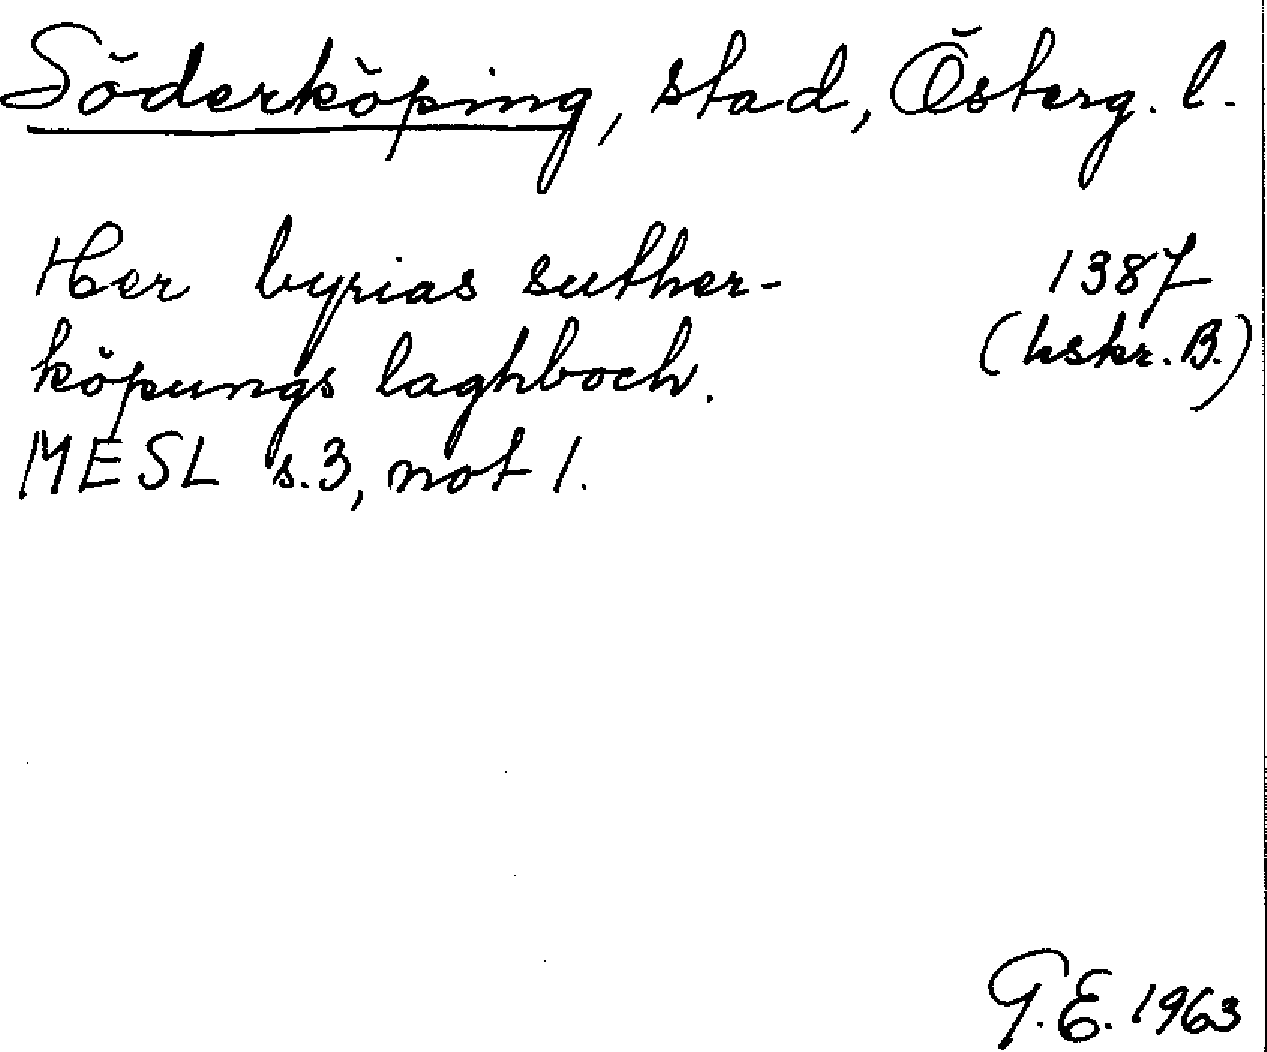 Söderköping, stad, Österg. l.
Her byrias suther- 1387
köpungs laghboch. (hskr. B.)
MESL s. 3, not 1.
G. E. 1963